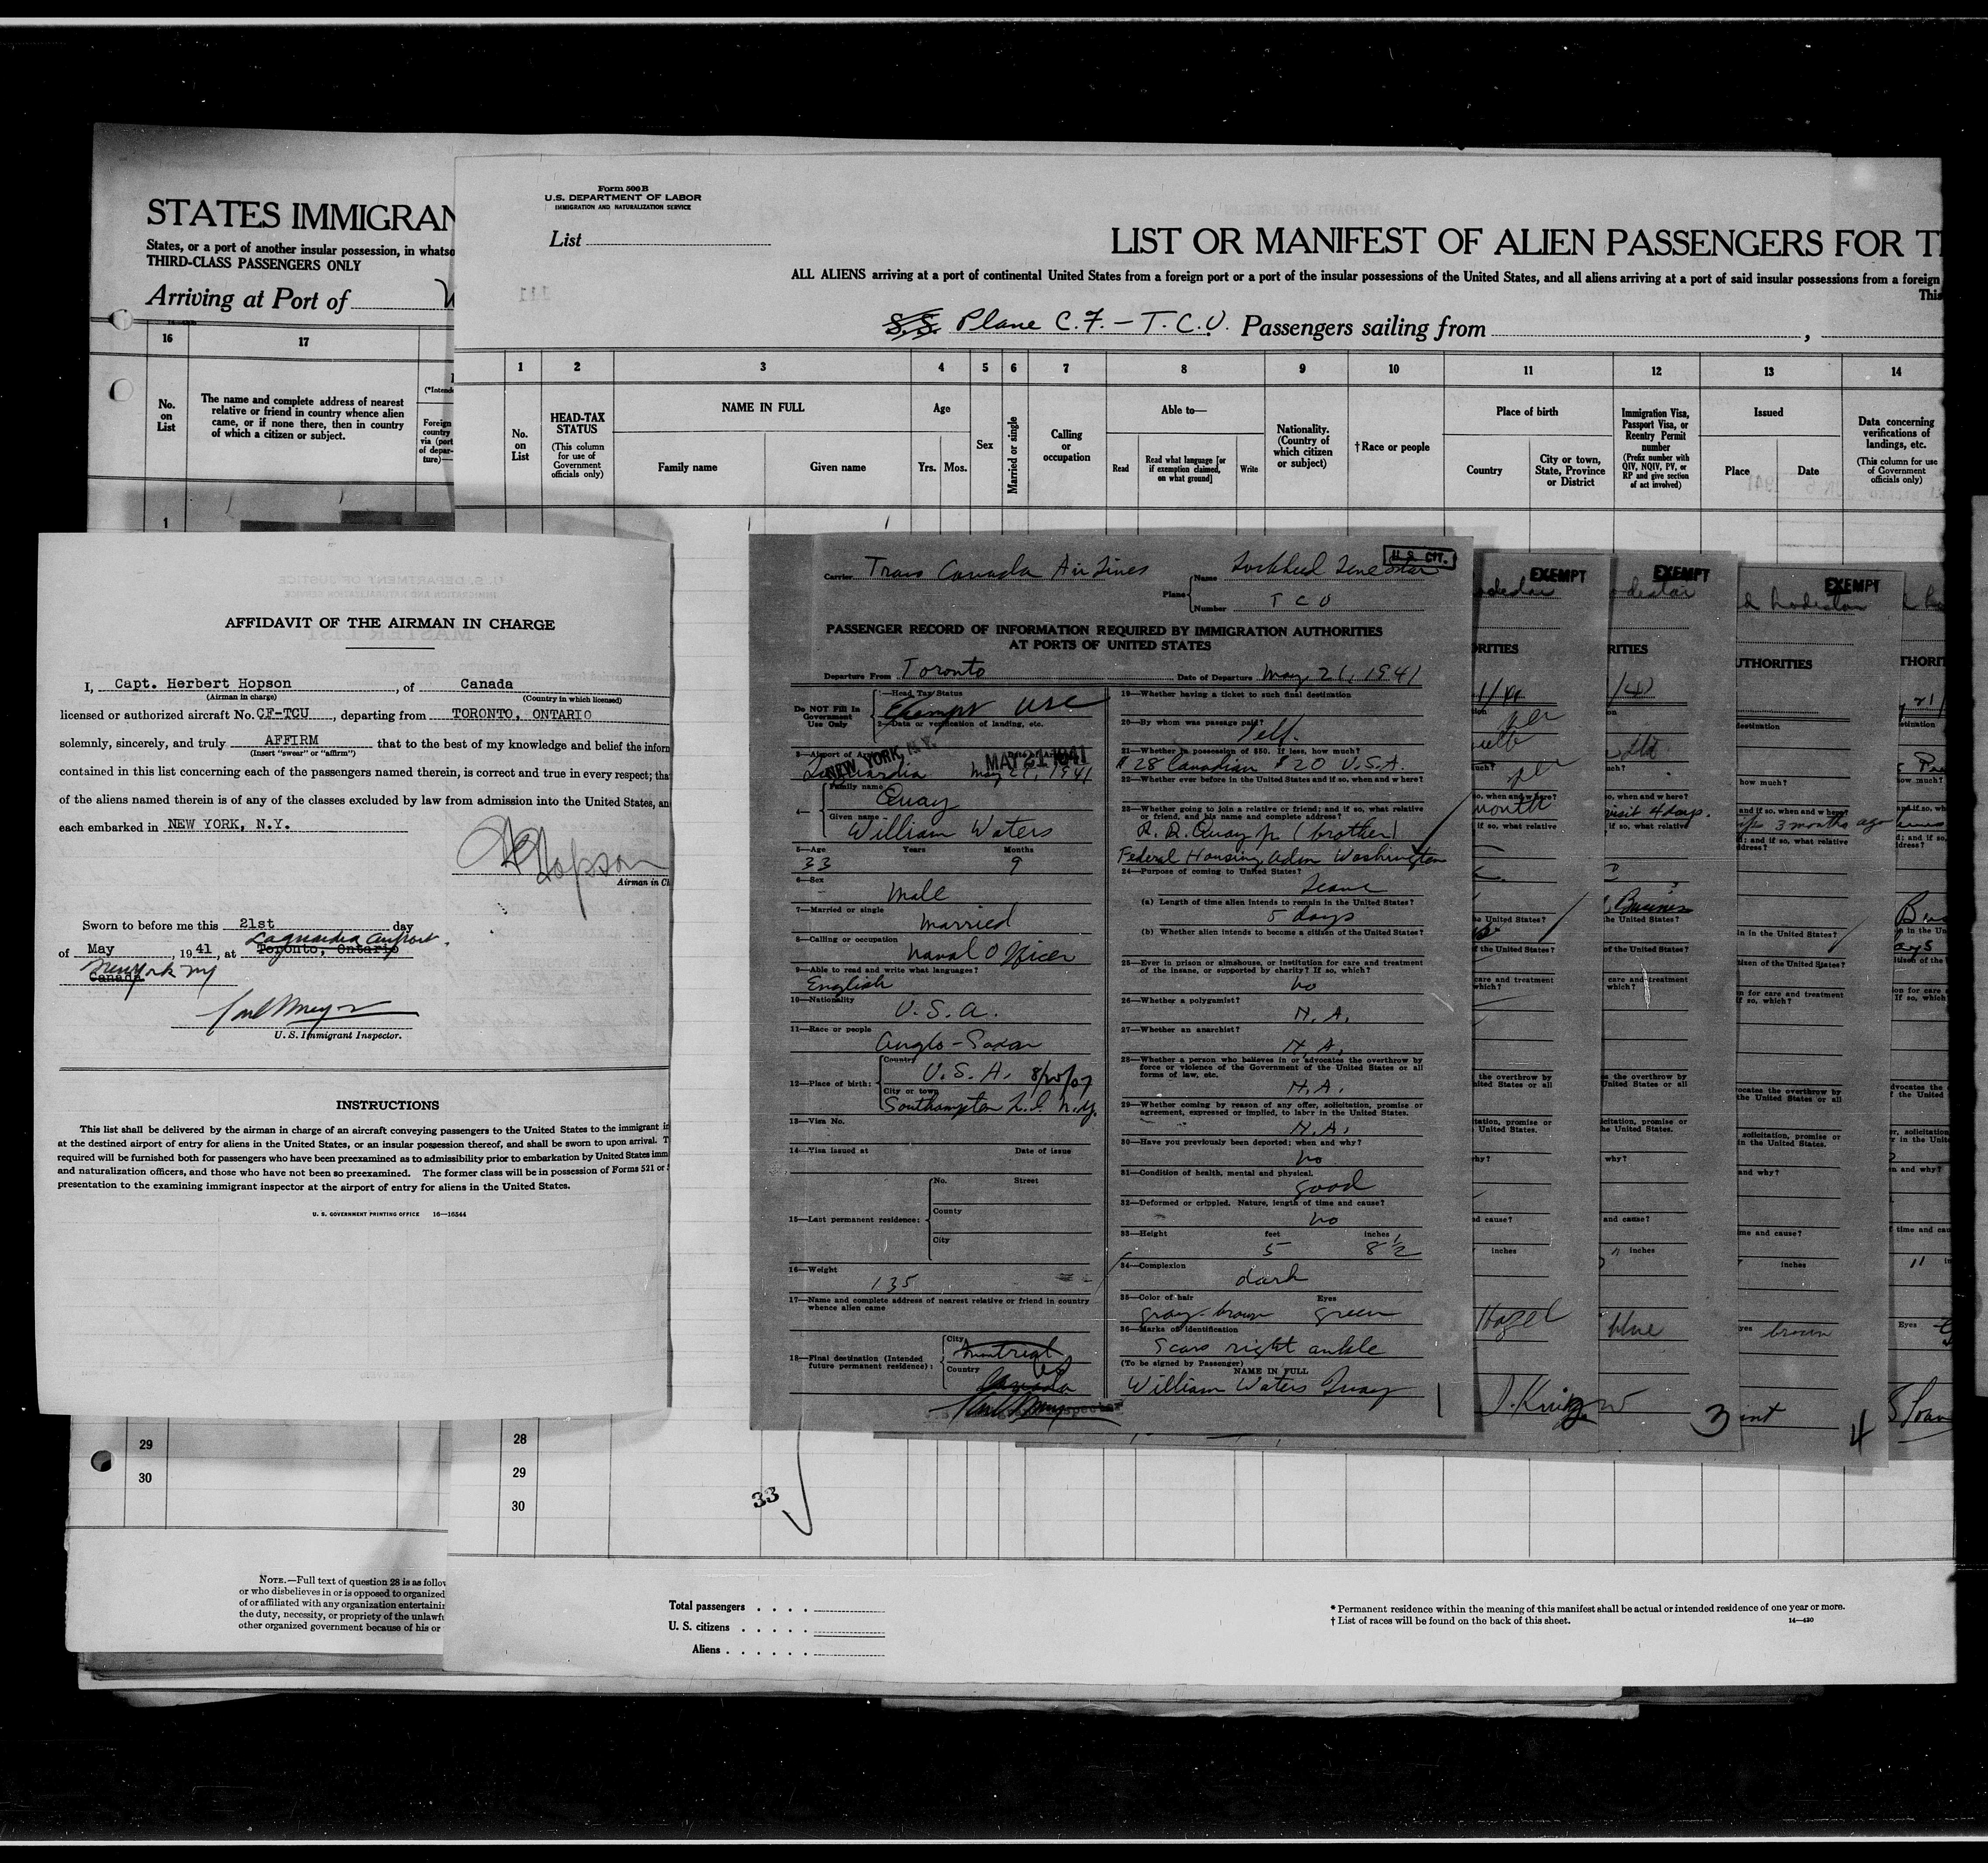 STATES IMMIGRAN
States, or a port of another insular possession, in whatso
THIRD-CLASS PASSENGERS ONLY
Arriving at Port of
16
17
No. on List
The name and complete address of nearest
relative or friend in country whence alien
came, or if none there, then in country
of which a citizen or subject.
(*Intende
Foreign
country
via (port
of depar-
ture)—
1
29
30
NOTE.—Full text of question 28 is as follow
or who disbelieves in or is opposed to organized
of or affiliated with any organization entertainin
the duty, necessity, or propriety of the unlawfu
other organized government because of his or
Form 500 B
U.S. DEPARTMENT OF LABOR
IMMIGRATION AND NATURALIZATION SERVICE
List
LIST OR MANIFEST OF ALIEN PASSENGERS FOR T
ALL ALIENS arriving at a port of continental United States from a foreign port or a port of the insular possessions of the United States, and all aliens arriving at a port of said insular possessions from a foreign
This
S.S. Plane C.F.—T.C.U. Passengers sailing from
1 2 3 4 5 6 7 8 9 10 11 12 13 14
No. on List
HEAD-TAX STATUS
(This column for use of Government officials only)
NAME IN FULL
Family name Given name
Age
Yrs. Mos.
Sex
Married or single
Calling or occupation
Able to—
Read
Read what language [or if exemption claimed, on what ground]
Write
Nationality. (Country of which citizen or subject)
†Race or people
Place of birth
Country
City or town, State, Province or District
Immigration Visa, Passport Visa, or Reentry Permit number
(Prefix number with QIV, NQIV, PV, or RP and give section of act involved)
Issued
Place Date
Data concerning verifications of landings, etc.
(This column for use of Government officials only)
AFFIDAVIT OF THE AIRMAN IN CHARGE
I, Capt. Herbert Hopson, of Canada
(Airman in charge) (Country in which licensed)
licensed or authorized aircraft No. CF-TCU, departing from TORONTO, ONTARIO
solemnly, sincerely, and truly AFFIRM that to the best of my knowledge and belief the inform
(Insert "swear" or "affirm")
contained in this list concerning each of the passengers named therein, is correct and true in every respect; tha
of the aliens named therein is of any of the classes excluded by law from admission into the United States, an
each embarked in NEW YORK, N.Y.
Hopson
Airman in Ch
Sworn to before me this 21st day
Laguardia Airport.
of May, 1941, at Toronto, Ontario
New York NY
Canada
U. S. Immigrant Inspector.
INSTRUCTIONS
This list shall be delivered by the airman in charge of an aircraft conveying passengers to the United States to the immigrant in
at the destined airport of entry for aliens in the United States, or an insular possession thereof, and shall be sworn to upon arrival. T
required will be furnished both for passengers who have been preexamined as to admissibility prior to embarkation by United States imm
and naturalization officers, and those who have not been so preexamined. The former class will be in possession of Forms 521 or
presentation to the examining immigrant inspector at the airport of entry for aliens in the United States.
U. S. GOVERNMENT PRINTING OFFICE 16—16544
U.S. CIT.
Carrier Trans Canada Air Lines
Plane Name Lockheed
Number T C U
PASSENGER RECORD OF INFORMATION REQUIRED BY IMMIGRATION AUTHORITIES
AT PORTS OF UNITED STATES
Departure From Toronto Date of Departure May 21, 1941
Do NOT Fill In Government Use Only
1—Head Tax Status
Exempt USC
2—Data or verification of landing, etc.
NEW YORK, N.Y. MAY 21 1941
LaGuardia May 21, 1941
4— Family name Quay
Given name William Waters
5—Age Years Months
33 9
6—Sex
Male
7—Married or single
Married
8—Calling or occupation
Naval Officer
9—Able to read and write what languages?
English
10—Nationality
U.S.A.
11—Race or people
Anglo-Saxon
12—Place of birth: Country U.S.A. 8/20/07
City or town
Southampton L.I. N.Y.
13—Visa No.
14—Visa issued at Date of issue
15—Last permanent residence: No. Street
County
City
16—Weight
135
17—Name and complete address of nearest relative or friend in country
whence alien came
18—Final destination (Intended
future permanent residence): City Montreal
Country Canada
19—Whether having a ticket to such final destination
20—By whom was passage paid?
Self.
21—Whether in possession of $50. If less, how much?
$28 Canadian $20 U.S.A.
22—Whether ever before in the United States and if so, when and where?
23—Whether going to join a relative or friend; and if so, what relative
or friend, and his name and complete address?
R. R. Quay Jr (brother)
Federal Housing Adm Washington
24—Purpose of coming to United States?
Leave
(a) Length of time alien intends to remain in the United States?
5 days
(b) Whether alien intends to become a citizen of the United States?
25—Ever in prison or almshouse, or institution for care and treatment
of the insane, or supported by charity? If so, which?
No
26—Whether a polygamist?
N.A.
27—Whether an anarchist?
N.A.
28—Whether a person who believes in or advocates the overthrow by
force or violence of the Government of the United States or all
forms of law, etc.
N.A.
29—Whether coming by reason of any offer, solicitation, promise or
agreement, expressed or implied, to labor in the United States.
N.A.
30—Have you previously been deported; when and why?
No
31—Condition of health, mental and physical.
good
32—Deformed or crippled. Nature, length of time and cause?
No
33—Height feet inches
5 8½
34—Complexion
dark
35—Color of hair Eyes
gray-brown green
36—Marks of identification
Scars right ankle
(To be signed by Passenger)
NAME IN FULL
William Waters Quay
1
EXEMPT
EXEMPT
EXEMPT
month
visit 4 days.
3 months ago
Business
Hazel
blue
brown
3
4
28
29
30
33
Total passengers
U. S. citizens
Aliens
* Permanent residence within the meaning of this manifest shall be actual or intended residence of one year or more.
† List of races will be found on the back of this sheet.
14—420